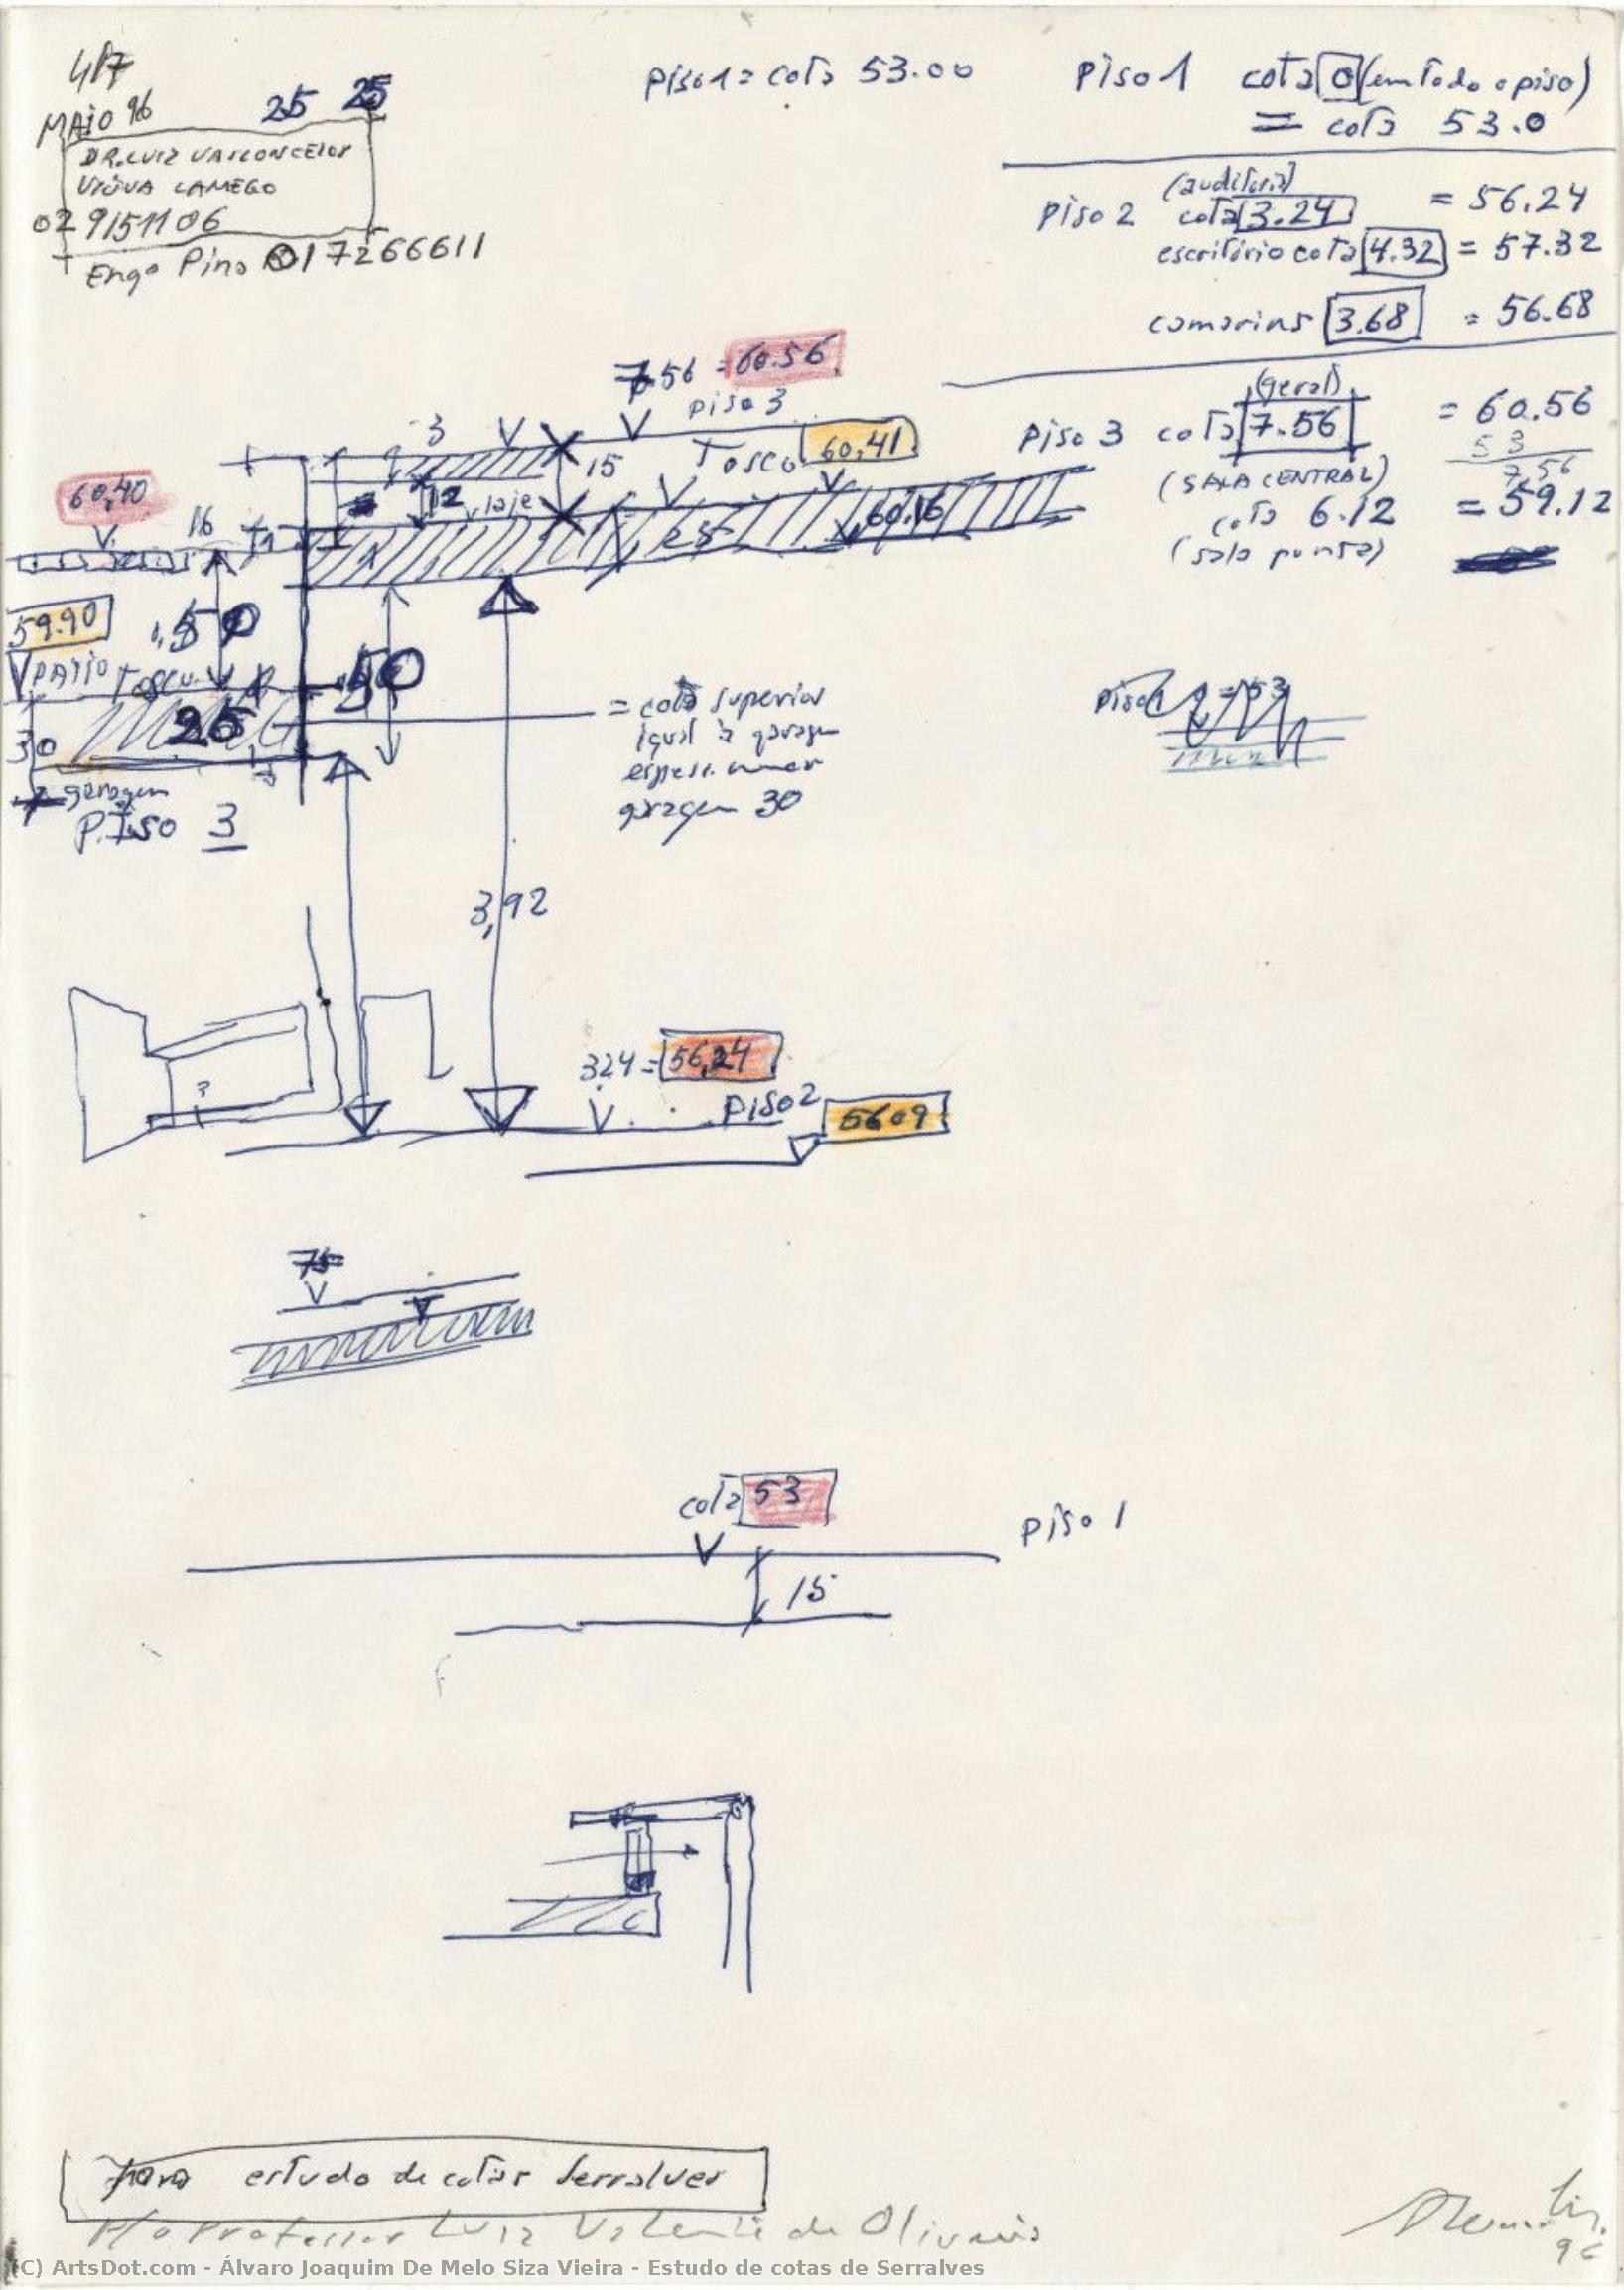 417
MAIO 96
25 25
DR. LUIZ VASCONCELOS
VIÚVA LAMEGO
02 9151106
Engo Pina 017266611
piso 1 = cota 53.00
Piso 1 cota 0 (em todo o piso)
= cota 53.0
(auditorio)
Piso 2 cota 3.24 = 56.24
escritório cota 4.32 = 57.32
camarins 3.68 = 56.68
(geral)
Piso 3 cota 7.56 = 60.56
53
7,56
(SALA CENTRAL)
cota 6.12 = 59.12
(sala ponta)
7.56 = 60.56
piso 3
3
15
Tosco 60,41
60,40
16
12
laje
25
60,16
59.90
,50
50
PATIO Tosco
25
30
garagem
PISO 3
= cota superior
igual à garagem
garagem 30
piso 1 = 53
3,92
?
324 = 56,24
PISO 2
5609
75
cota 53
piso 1
15
para estudo de cotas Serralves
P/o Professor Luiz Valente de Oliveira
96
(C) ArtsDot.com - Álvaro Joaquim De Melo Siza Vieira - Estudo de cotas de Serralves